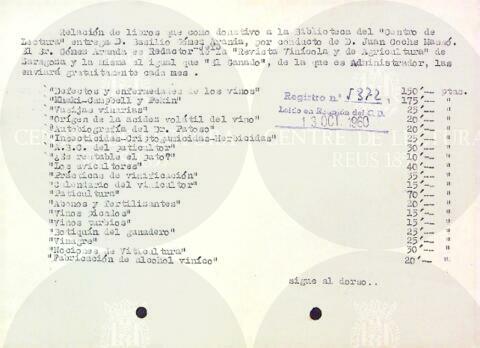 Relación de libros que como donativo a la Biblioteca del "Centro de
Lectura" entrega D. Basilio Gómez Aranda, por conducto de D. Juan Cochs Massó.
El Sr. Gómez Aranda es Redactor de la "Revista Vinícola y de Agricultura" de
Zaragoza y la misma el igual que "El Ganado", de la que es Administrador, las
enviará gratuitamente cada mes.
"Defectos y enfermedades de los vinos" 150'-- ptas.
"Khaki-Campbell y Pekín" 175'-- "
"Vasijas vinarias" 25'-- "
"Origen de la acidez volátil del vino" 20'-- "
"Autobiografía del Dr. Patoso" 20'-- "
"Insecticidas-Criptogamicidas-Herbicidas" 25'-- "
"A.B.C. del paticultor" 30'-- "
"¿Es rentable el pato?" 10'-- "
"Los avicultores" 40'-- "
"Prácticas de vinificación" 35'-- "
"Calendario del vinicultor" 15'-- "
"Paticultura" 70'-- "
"Abonos y fertilizantes" 20'-- "
"Vinos picados" 15'-- "
"Vinos turbios" 15'-- "
"Botiquín del ganadero" 25'-- "
"Vinagre" 25'-- "
"Nociones de Viticultura" 30'-- "
"Fabricación de alcohol vínico" 20'-- "
Registro n.º 1372
Leído en Reunión del C. D.
13 OCT. 1960
CENTRE DE LECTURA
REUS 18
sigue al dorso..